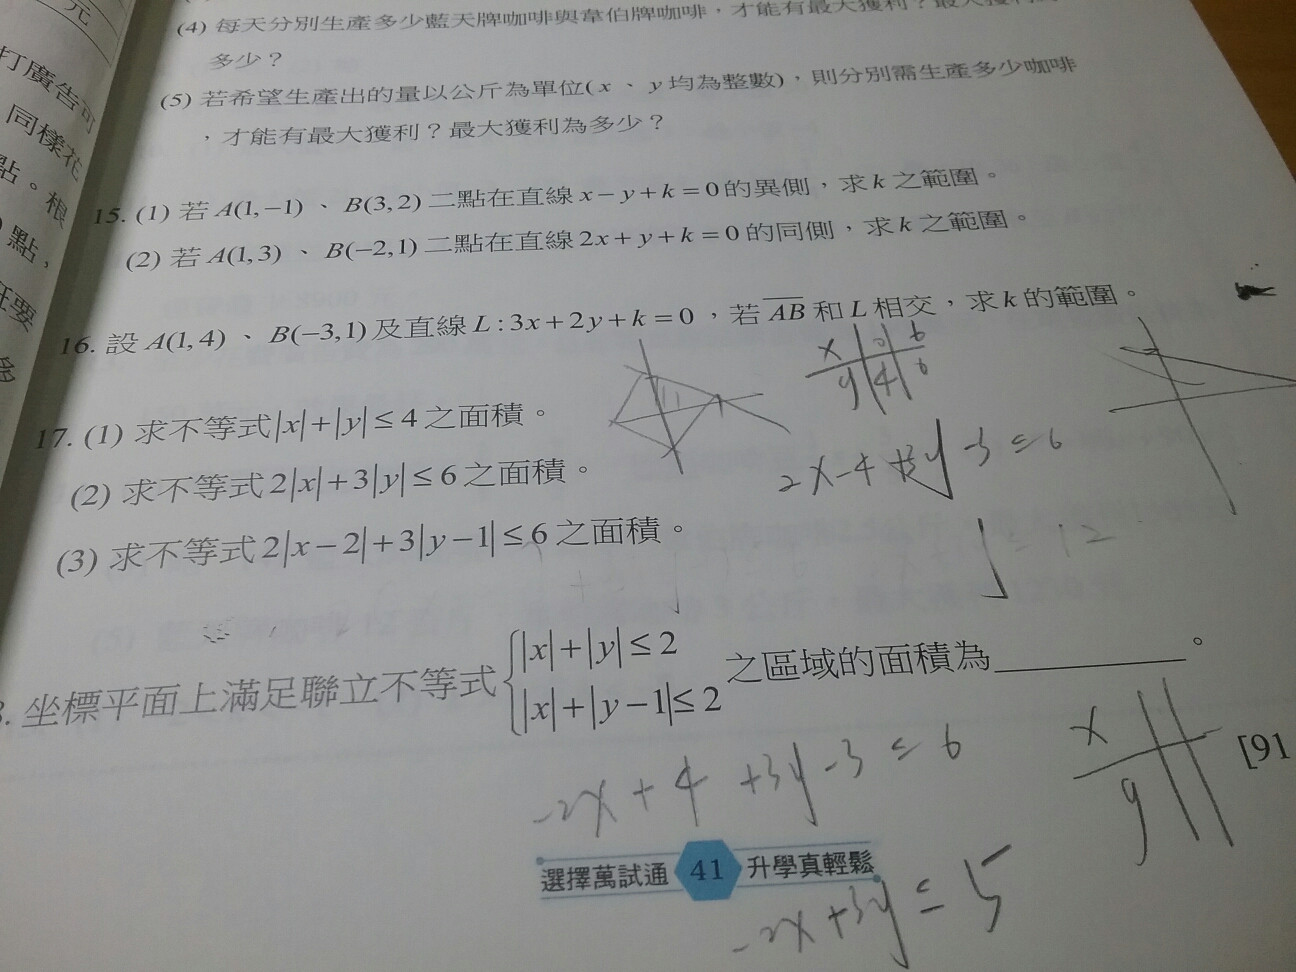 元
打廣告可
同樣花
點。根
點，
(4) 每天分別生產多少藍天牌咖啡與韋伯牌咖啡，才能有最大獲利？最大獲利
多少？
(5) 若希望生產出的量以公斤為單位(x、y均為整數)，則分別需生產多少咖啡
，才能有最大獲利？最大獲利為多少？
15. (1) 若A(1,−1)、B(3,2)二點在直線x−y+k=0的異側，求k之範圍。
(2) 若A(1,3)、B(−2,1)二點在直線2x+y+k=0的同側，求k之範圍。
16. 設A(1,4)、B(−3,1)及直線L:3x+2y+k=0，若AB和L相交，求k的範圍。
x
y 4 6
17. (1) 求不等式|x|+|y|≤4之面積。
(2) 求不等式2|x|+3|y|≤6之面積。
2x-4+3y-3≤6
(3) 求不等式2|x−2|+3|y−1|≤6之面積。
坐標平面上滿足聯立不等式{|x|+|y|≤2
|x|+|y−1|≤2
之區域的面積為________。
[91
x
y
-2x+4+3y-3≤6
-2x+3y≤5
選擇萬試通 41 升學真輕鬆